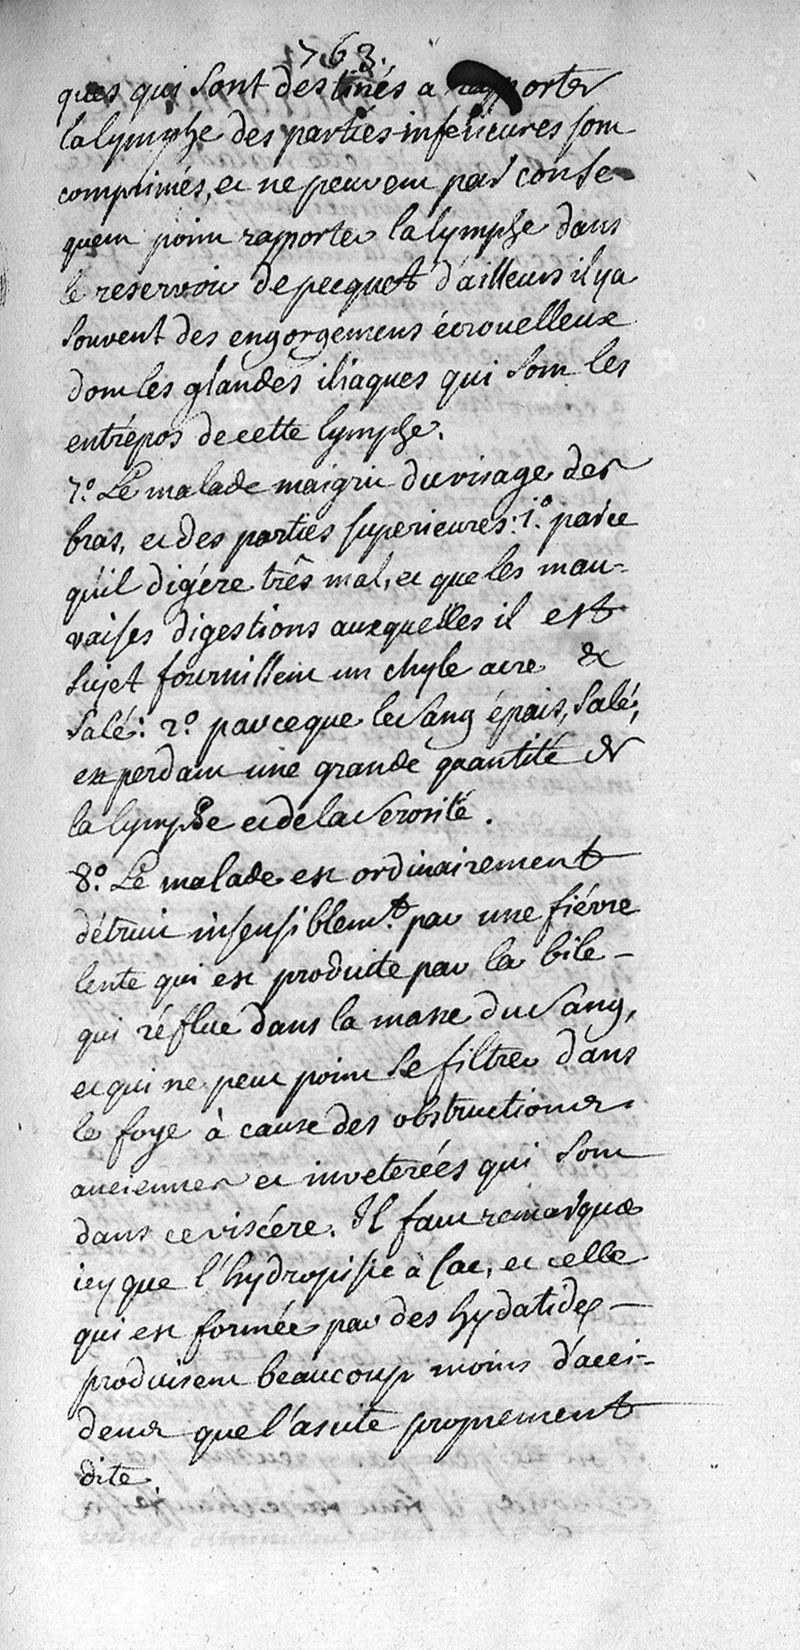 763.
ques qui sont destinés a rapporter
la lymphe des parties inferieures sont
comprimés, et ne peuvent par conse-
quent point rapporter la lymphe dans
le reservoir de pecquet d'ailleurs il y a
souvent des engorgemens écrouelleux
dont les glandes iliaques qui sont les
entrépos de cette lymphe.
7.º Le malade maigrit du visage des
bras, et des parties superieures: 1.º parce
qu'il digére trés mal, et que les mau-
vaises digestions auxquelles il est
sujet fournissent un chyle acre &
salé: 2.º parceque le sang épais, salé,
en perdant une grande quantité de
la lymphe et de la serosité.
8.º Le malade est ordinairement
détruit insensiblem.t par une fiévre
lente qui est produite par la bile -
qui réflue dans la masse du sang,
et qui ne peut point se filtrer dans
le foye à cause des obstructions
anciennes et inveterées qui sont
dans ce viscére. Il faut remarquer
icy que l'hydropisie à sac, et celle
qui est formée par des hydatides -
produisent beaucoup moins d'acci-
dens que l'ascite proprement
dite.